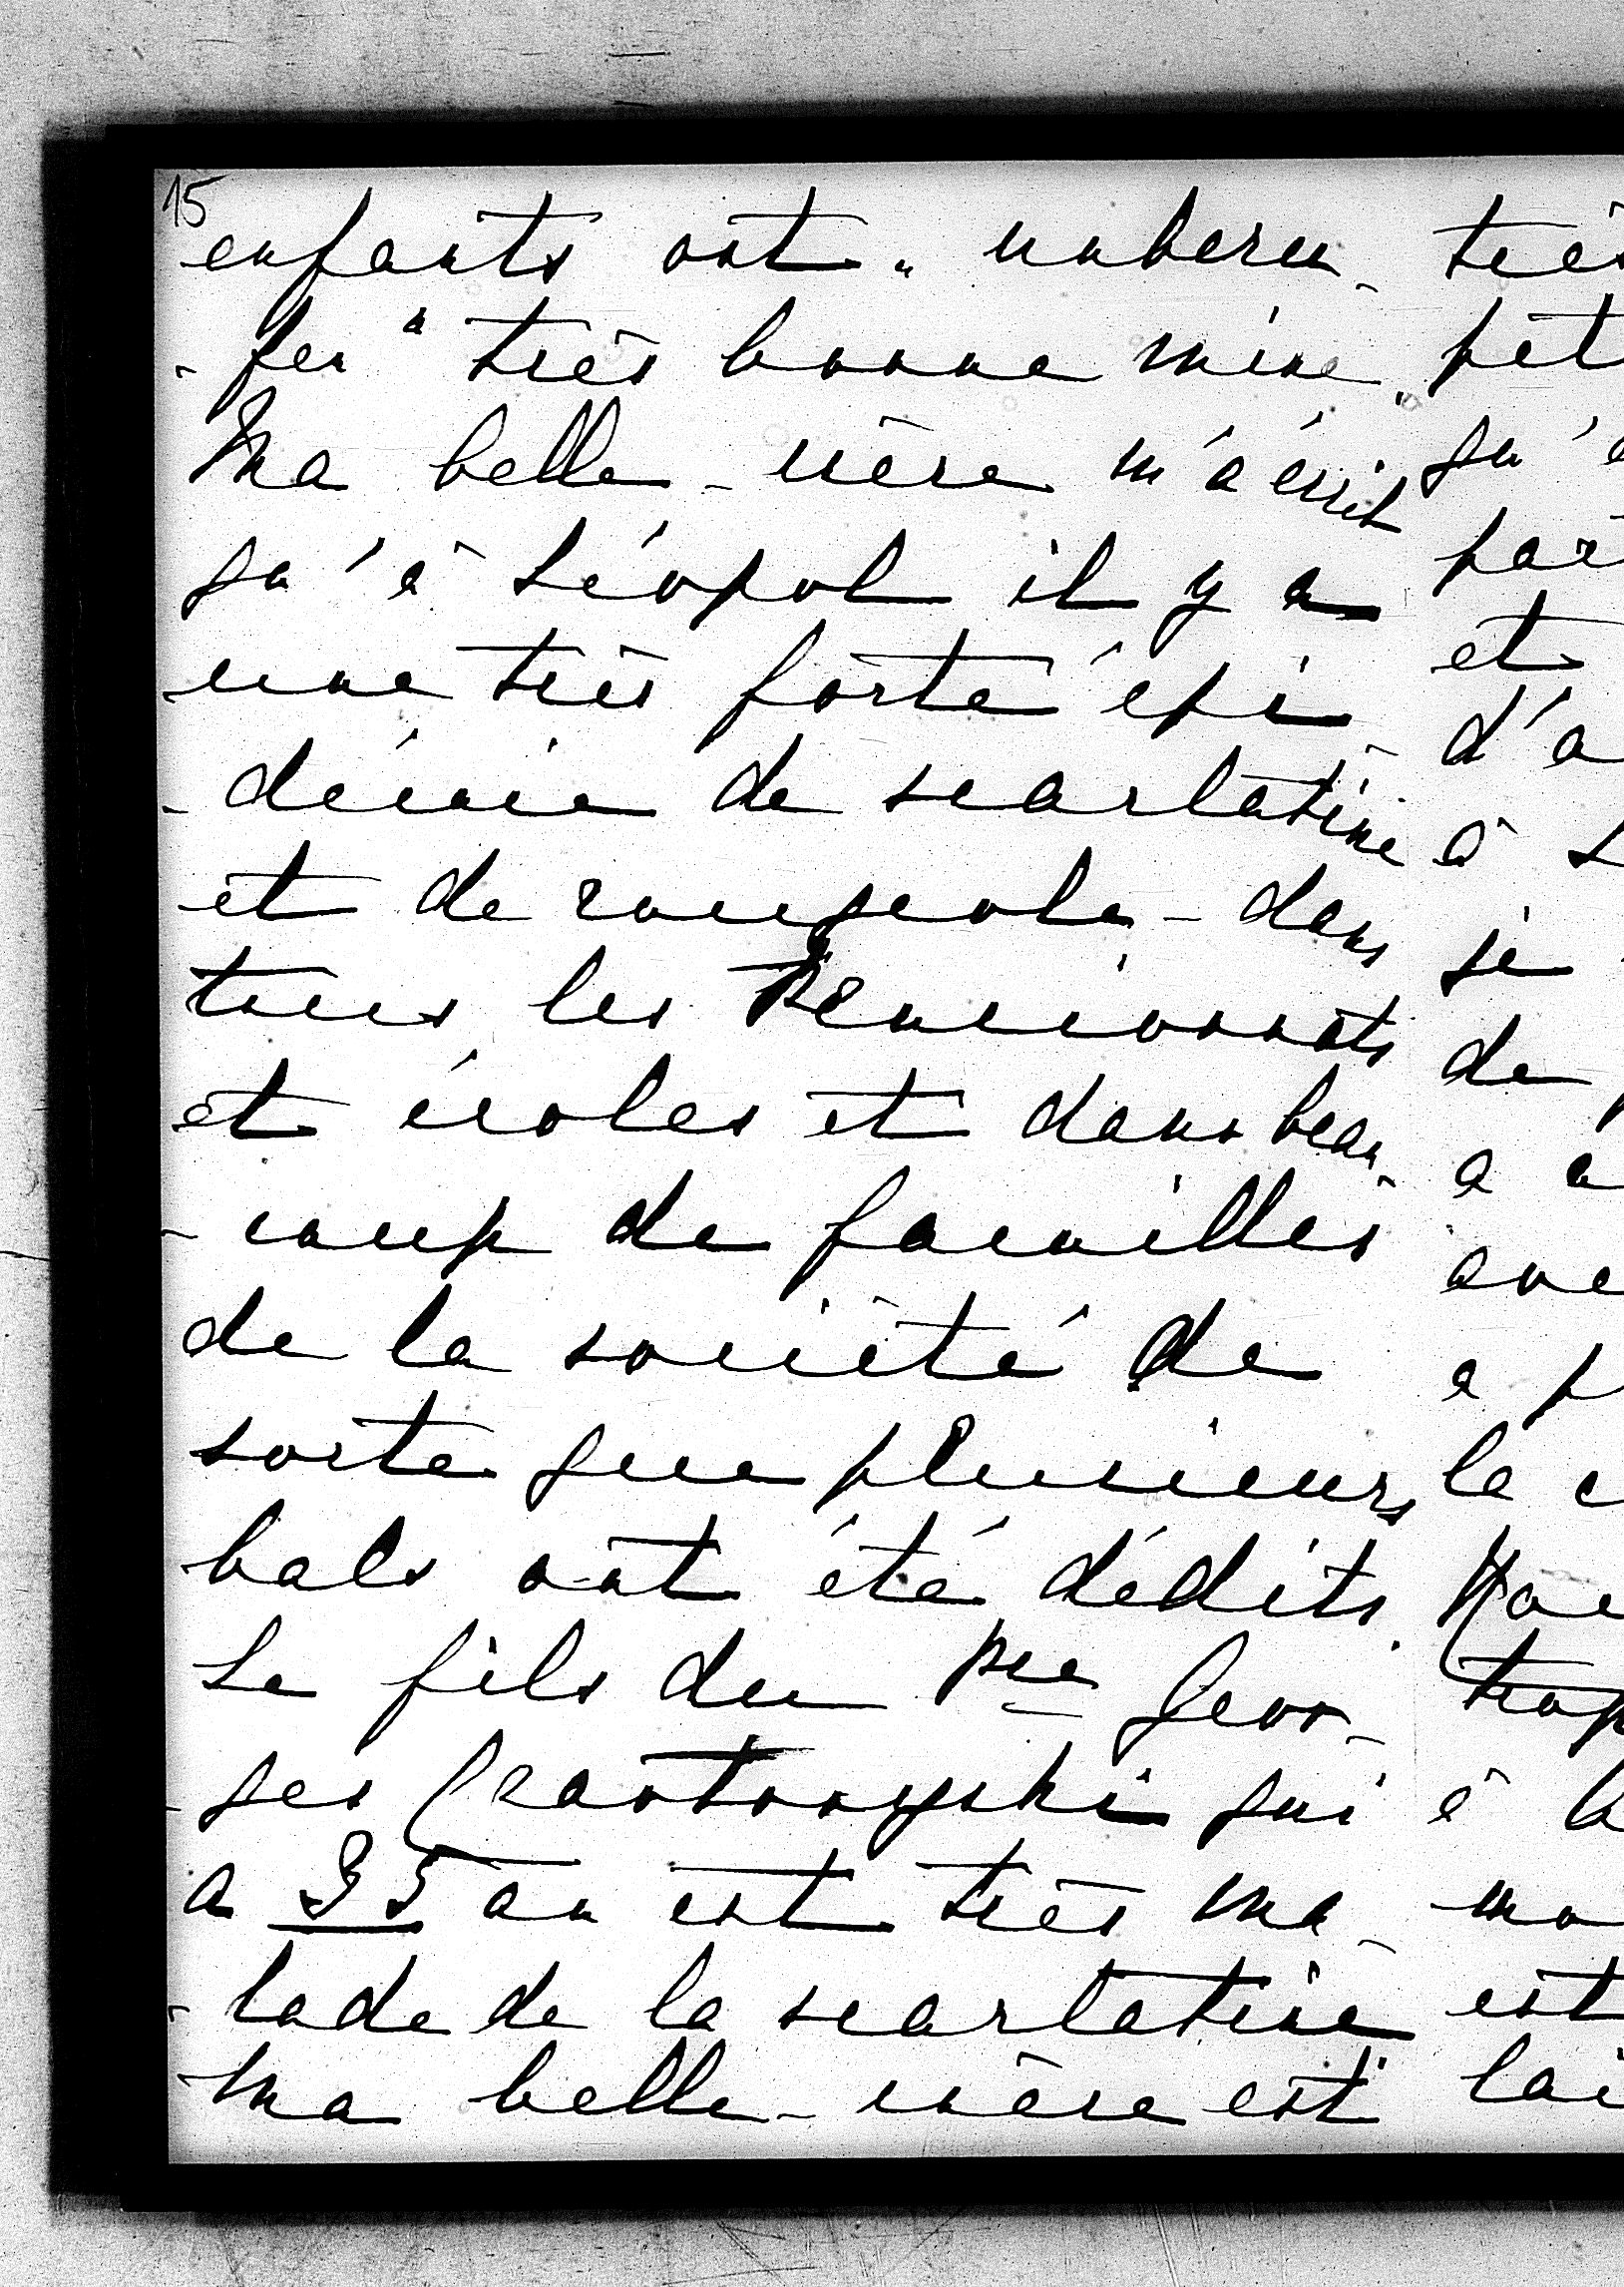 15
enfants ont „ unberu-
-fen “ très bonne mine.
Ma belle-mère m'a écrit
qu'à Léopol il y a
une très forte épi-
-démie de scarlatine
et de rougeole - dans
tous les Pensionnats
et écoles et dans beau-
-coup de familles
de la société de
sorte que plusieurs
bals ont été dédits.
Le fils du pce Geor-
-ges Czartoryski qui
a 35 an est très ma-
-lade de la scarlatine
Ma belle-mère est
très
pet
qu'
par
et
d'a
à
si
de
a
ave
a p
le
trop
à
est